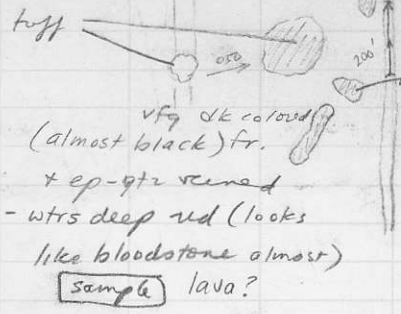 tuff
050
200'
vfg dk coloured
(almost black) fr.
+ ep-qtz veined
- wtrs deep red (looks
like bloodstone almost)
sample lava?